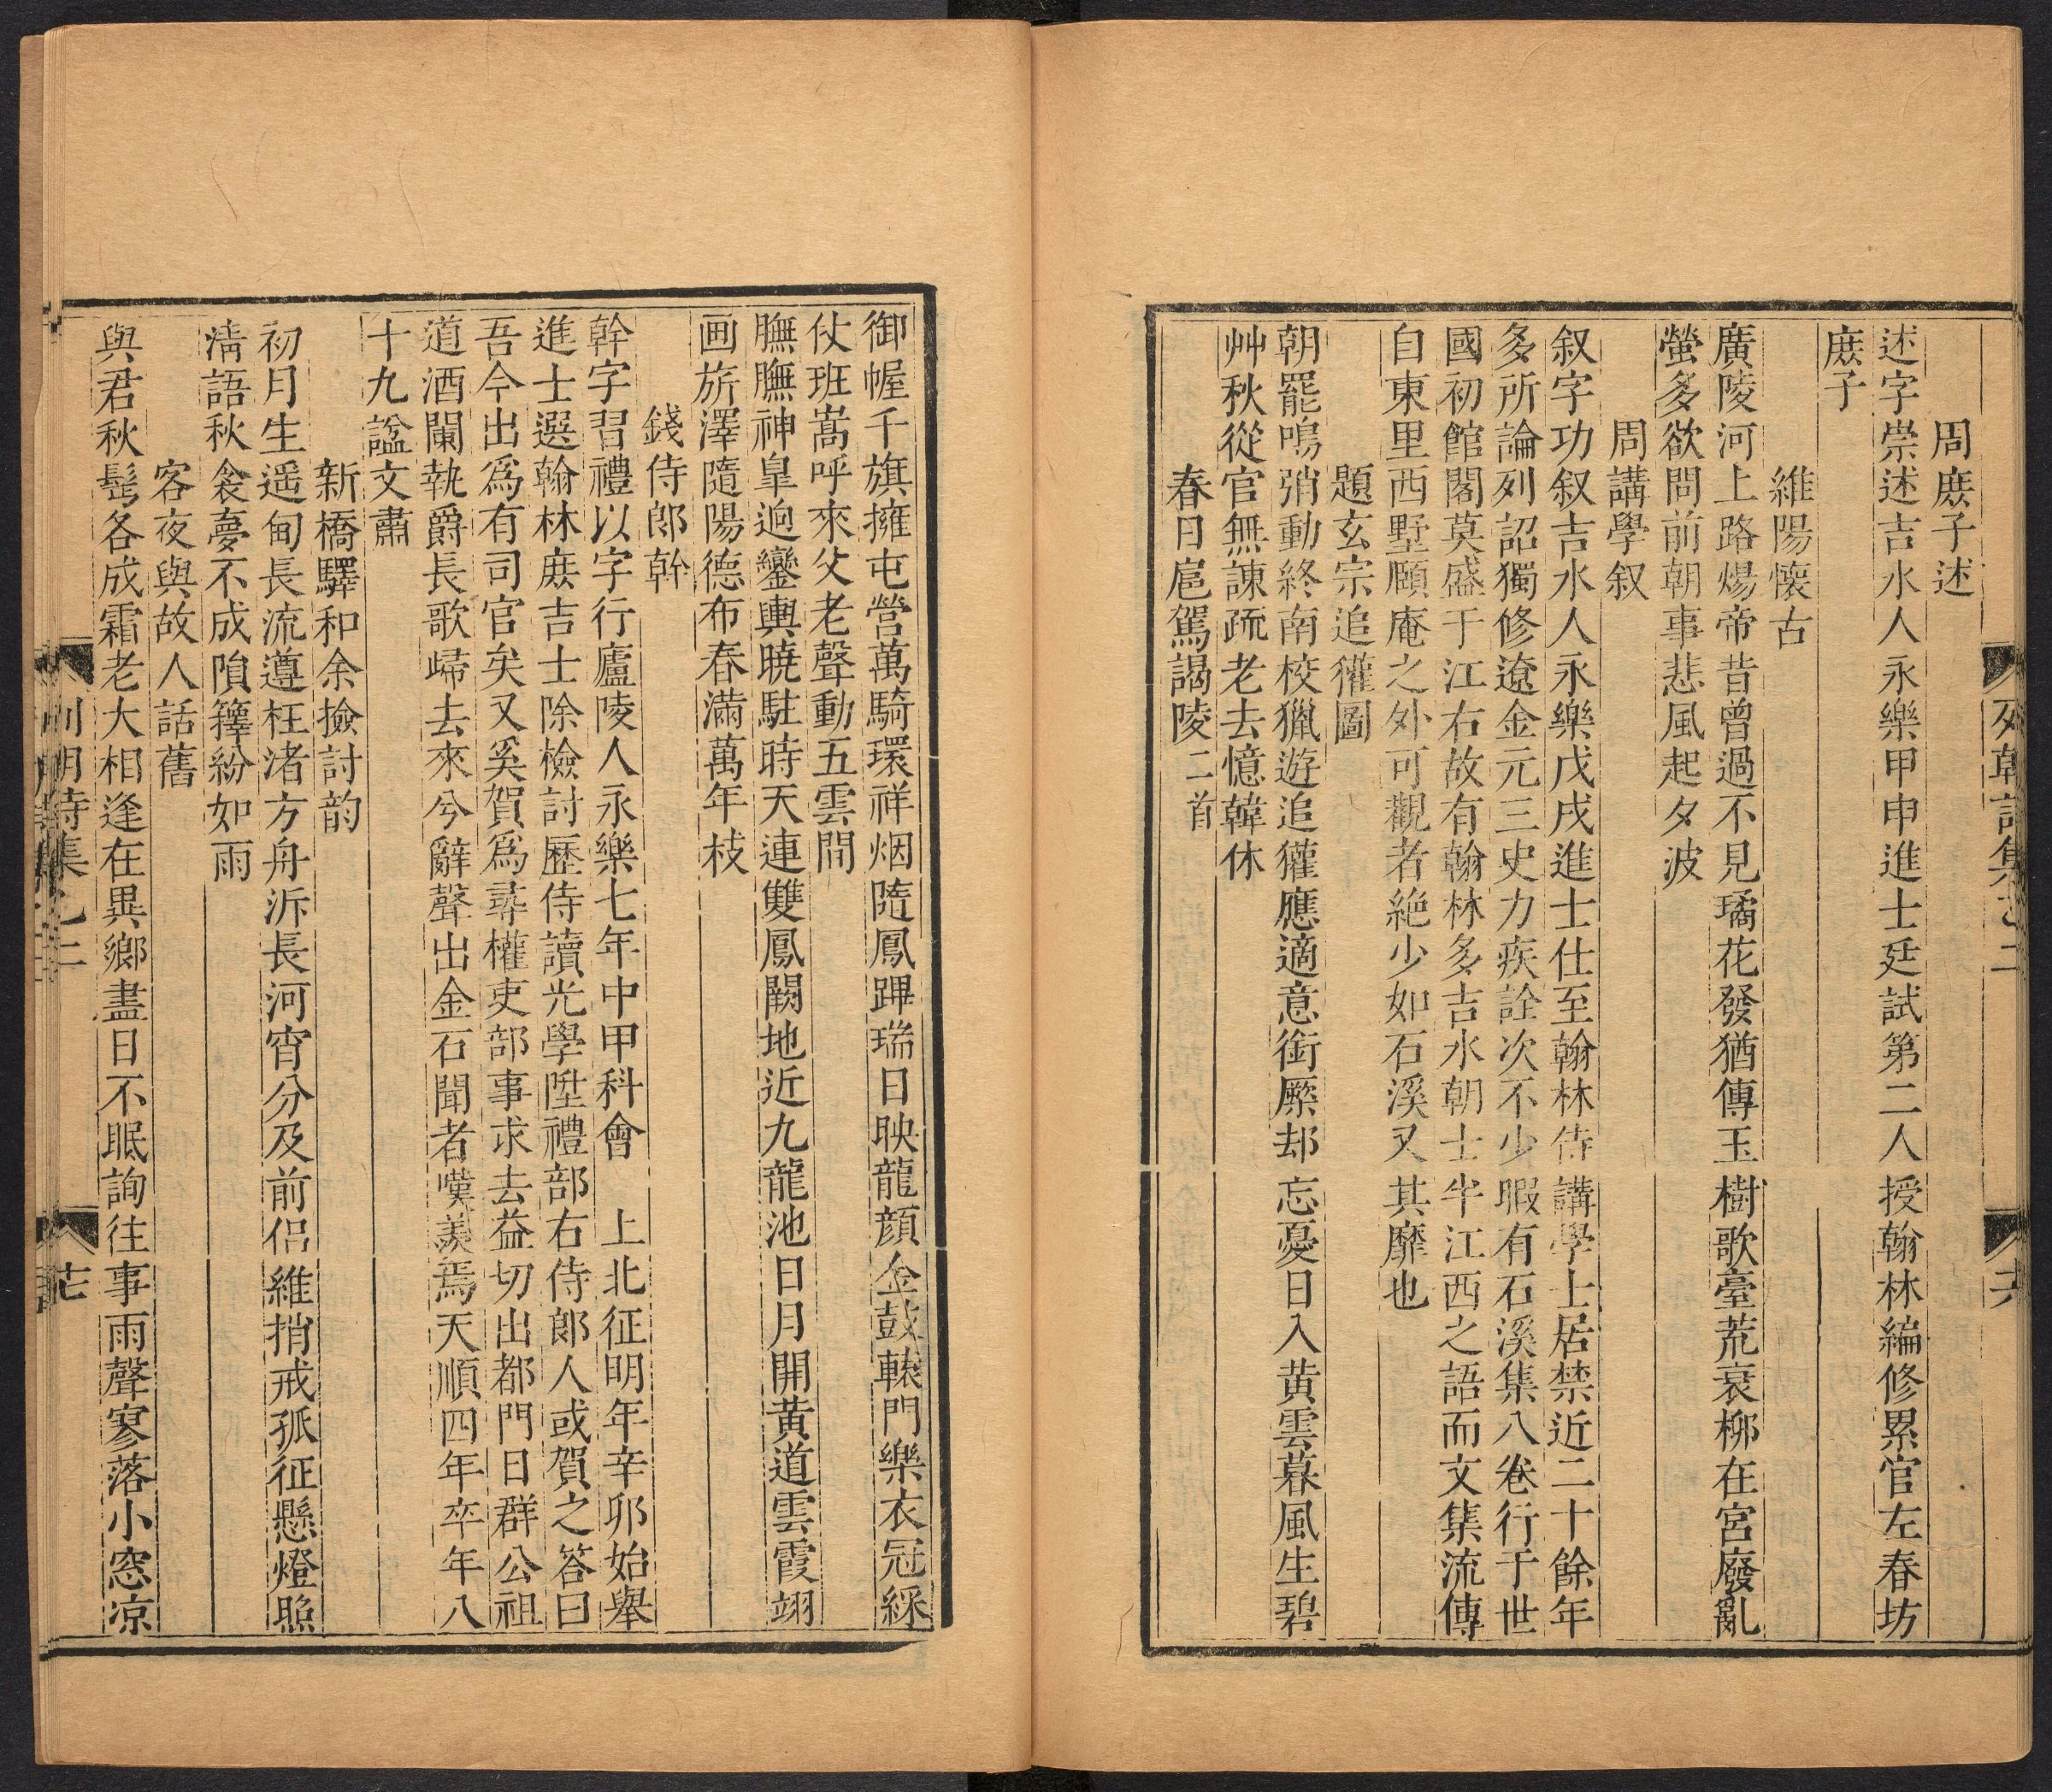 周庶子述
述字崇述吉水人永樂甲申進士廷試第二人授翰林編修累官左春坊
庶子
維陽懷古
廣陵河上路煬帝昔曾過不見璚花發猶傳玉樹歌臺荒衰柳在宮廢亂
螢多欲問前朝事悲風起夕波
周講學叙
叙字功叙吉水人永樂戊戌進士仕至翰林侍講學士居禁近二十餘年
多所論列詔獨修遼金元三史力疾詮次不少暇有石溪集八卷行于世
國初館閣莫盛于江右故有翰林多吉水朝士半江西之語而文集流傳
自東里西墅頤庵之外可觀者絶少如石溪又其靡也
題玄宗追獾圖
朝罷鳴弰動終南校獵遊追獾應適意銜橛却忘憂日入黄雲暮風生碧
艸秋從官無諫疏老去憶韓休
春日扈駕謁陵二首
御幄千旗擁屯營萬騎環祥烟隨鳳蹕瑞日映龍顔金鼓轅門樂衣冠綵
仗班嵩呼來父老聲動五雲間
膴膴神臯逈鑾輿曉駐時天連雙鳳闕地近九龍池日月開黄道雲霞翊
画旂澤隨陽德布春滿萬年枝
錢侍郎幹
幹字習禮以字行廬陵人永樂七年中甲科會 上北征明年辛卯始舉
進士選翰林庶吉士除檢討歷侍讀光學陞禮部右侍郎人或賀之答曰
吾今出爲有司官矣又奚賀爲尋權吏部事求去益切出都門日群公祖
道酒闌執爵長歌歸去來兮辭聲出金石聞者嘆羡焉天順四年卒年八
十九諡文肅
新橋驛和余撿討韵
初月生遥甸長流遵枉渚方舟泝長河宵分及前侣維捎戒孤征懸燈照
淸語秋衾夢不成隕籜紛如雨
客夜與故人話舊
與君秋髩各成霜老大相逢在異鄉盡日不眠詢往事雨聲寥落小窓凉
明詩集之二